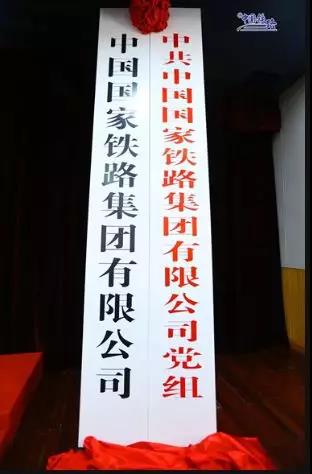 中国铁路
中国国家铁路集团有限公司
中共中国国家铁路集团有限公司党组